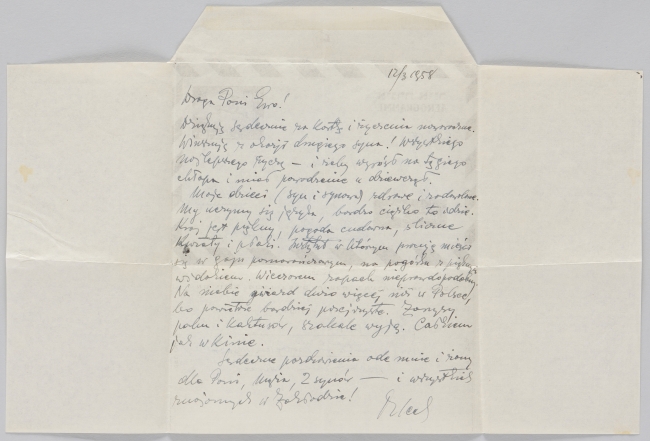 12/3 1958
Droga Pani Ewo!
Dziękuję serdecznie za kartkę i życzenia noworoczne.
Winszuję z okazji drugiego syna! Wszystkiego
najlepszego życzę — i żeby wyrósł na tęgiego
chłopa i miał powodzenie u dziewcząt.
Moje dzieci (syn i synowa) zdrowe i zadowolone.
My uczymy się języka, bardzo ciężko to idzie.
Kraj jest piękny, pogoda cudowna, śliczne
kwiaty i ptaki. w którym pracuję mieści
się w gaju pomarańczowym, na pagórku z pięknym
widokiem. Wieczorem zapach nieprawdopodobny.
Na niebie gwiazd dużo więcej niż w Polsce,
bo powietrze bardziej przejrzyste. Zarysy
palm i kaktusów, szakale wyją. Całkiem
jak w kinie.
Serdeczne pozdrowienia ode mnie i żony
dla Pani, męża, 2 synów — i wszystkich
znajomych w Zakładzie!